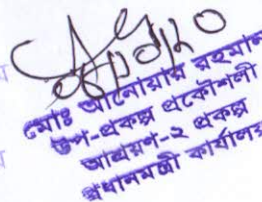 মোঃ আনোয়ার রহমান
উপ-প্রকল্প প্রকৌশলী
আশ্রয়ণ-২ প্রকল্প
প্রধানমন্ত্রী কার্যালয়